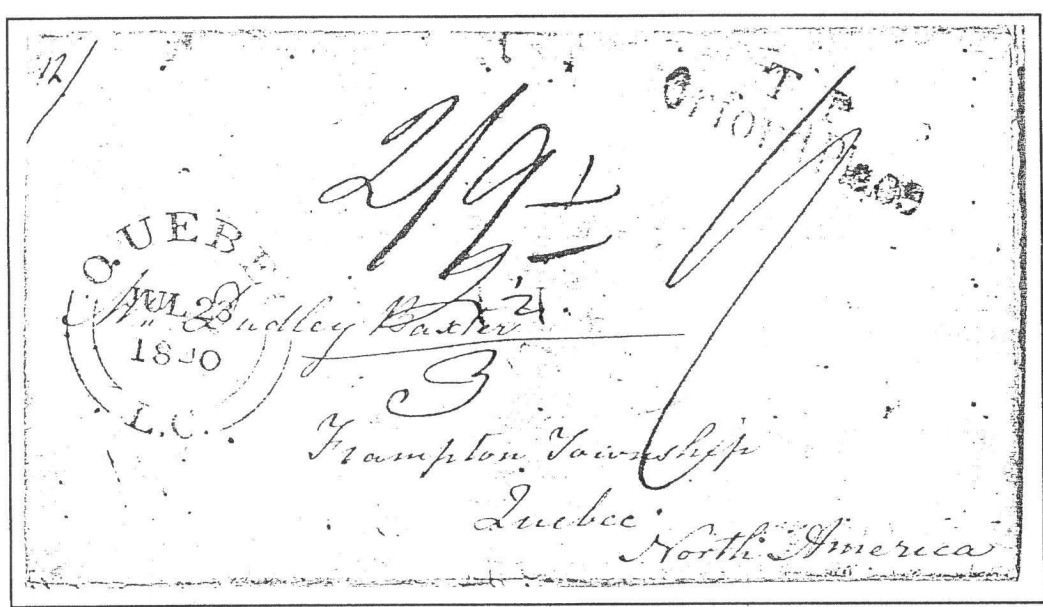 12/
T.P.
2/9
1/
QUEBEC
JUL 23
L.C.
Mr Dudley Baxter
3
Frampton Township
Quebec.
North America